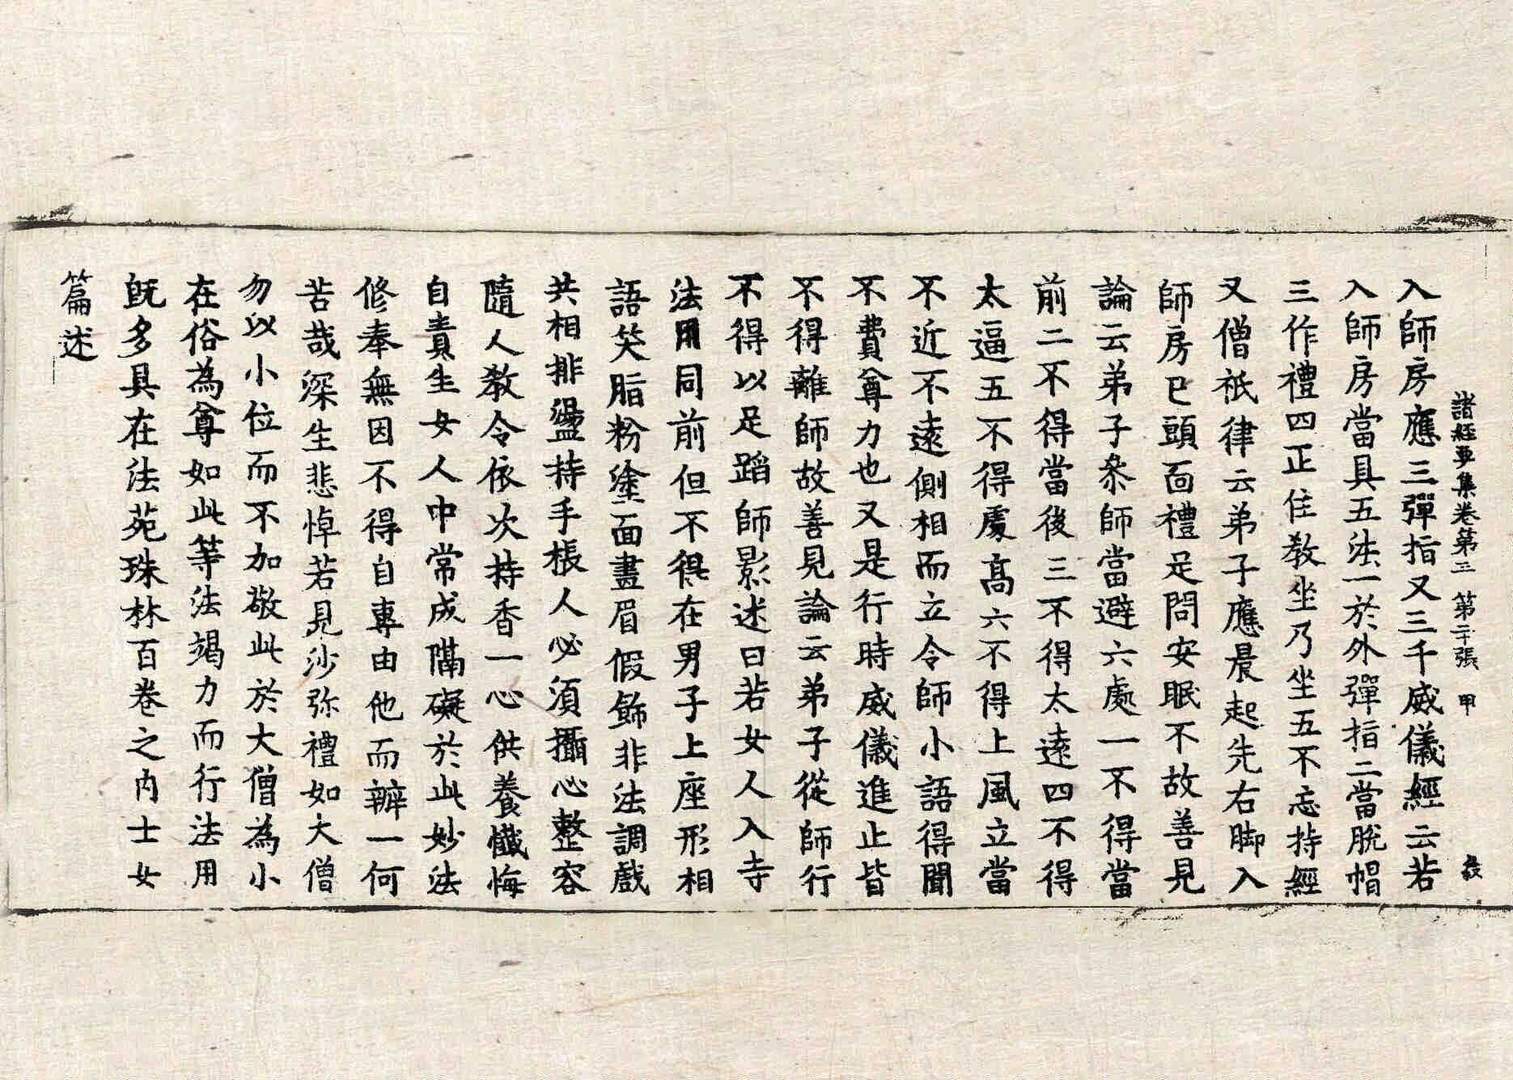 諸經要集卷第三 第二十張 甲
入師房應三彈指又三千威儀經云若
入師房當具五法一於外彈指二當脫帽
三作禮四正住教坐乃坐五不忘持經
又僧祇律云弟子應晨起先右脚入
師房已頭面禮足問安眠不故善見
論云弟子叅師當避六處一不得當
前二不得當後三不得太遠四不得
太逼五不得處高六不得上風立當
不近不遠側相而立令師小語得聞
不費尊力也又是行時威儀進止皆
不得離師故善見論云弟子從師行
不得以足蹈師影述曰若女人入寺
法用同前但不得在男子上座形相
語笑脂粉塗面畫眉假飾非法調戲
共相排盪持手棖人必須攝心整容
隨人教令依次持香一心供養懺悔
自責生女人中常成隔礙於此妙法
修奉無因不得自專由他而辦一何
苦哉深生悲悼若見沙弥禮如大僧
勿以小位而不加敬此於大僧為小
在俗為尊如此等法竭力而行法用
既多具在法苑珠林百卷之內士女
篇述